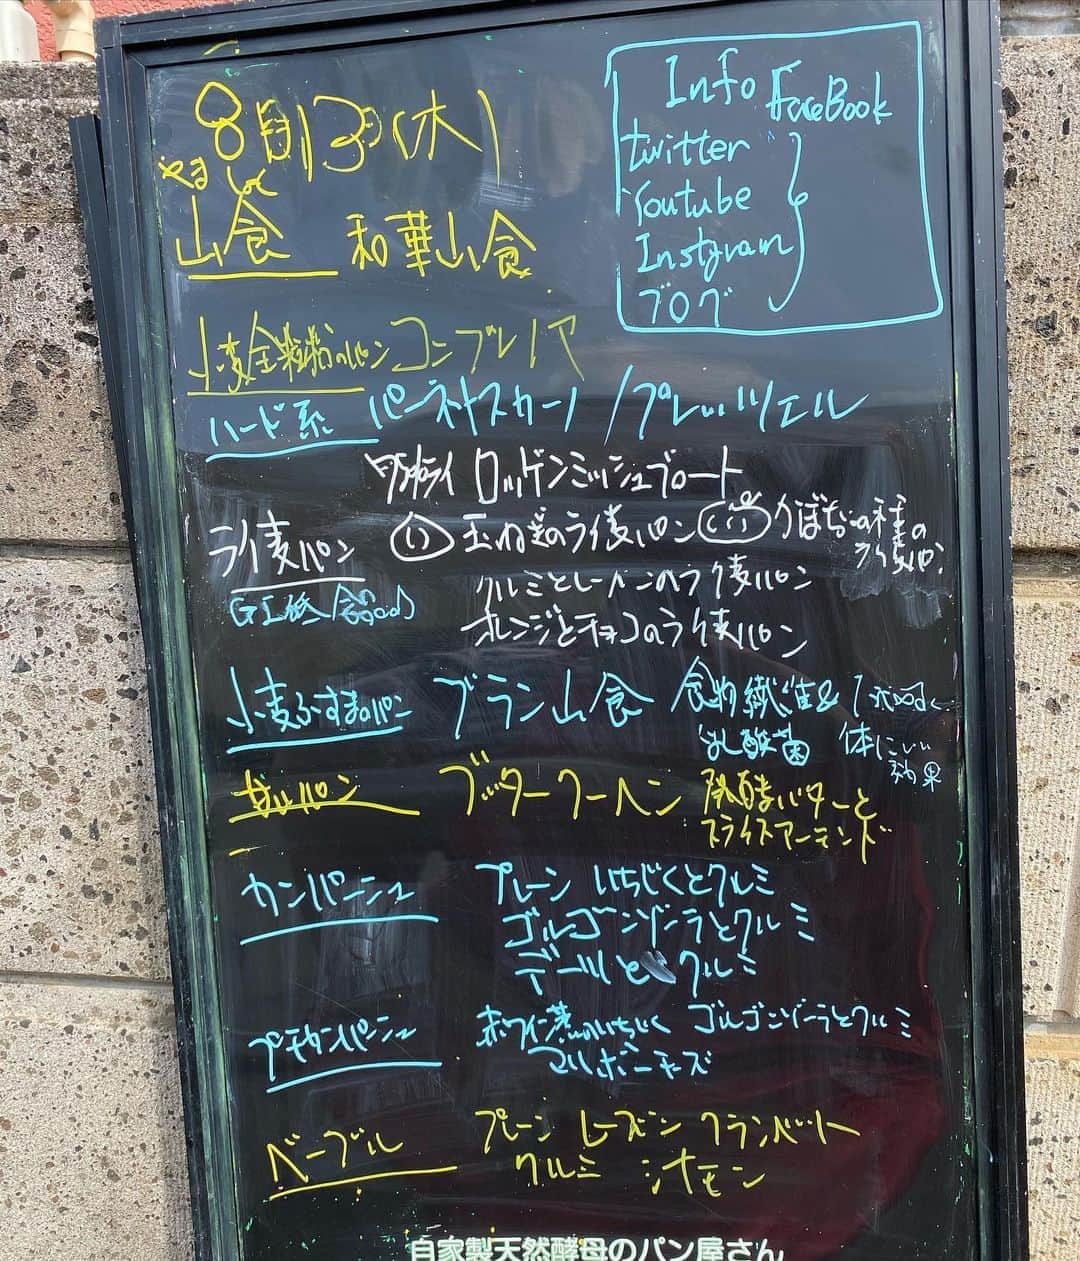 8月13日(水)
やま しょく
山食 和華山食
Info FaceBook
twitter
Youtube
Instgram
ブログ
小麦全粒粉のパン コンプレノア
ハード系 パーネトスカーノ/プレッツェル
ロッゲンミッシュブロート
ライ麦パン 玉ねぎのライ麦パン かぼちゃの種のライ麦パン
GI低 食のgood
クルミとレーズンのライ麦パン
オレンジとチョコのライ麦パン
小麦ふすまのパン ブラン山食 食物繊維&
乳酸菌 体にいい
効果
甘いパン ブッタークーヘン 発酵バターと
スライスアーモンド
カンパーニュ プレーン いちじくとクルミ
ゴルゴンゾーラとクルミ
デーツとクルミ
プチカンパーニュ 赤ワイン煮のいちじく ゴルゴンゾーラとクルミ
マルボーチーズ
ベーグル プレーン レーズン クランベリー
クルミ シナモン
自家製天然酵母のパン屋さん